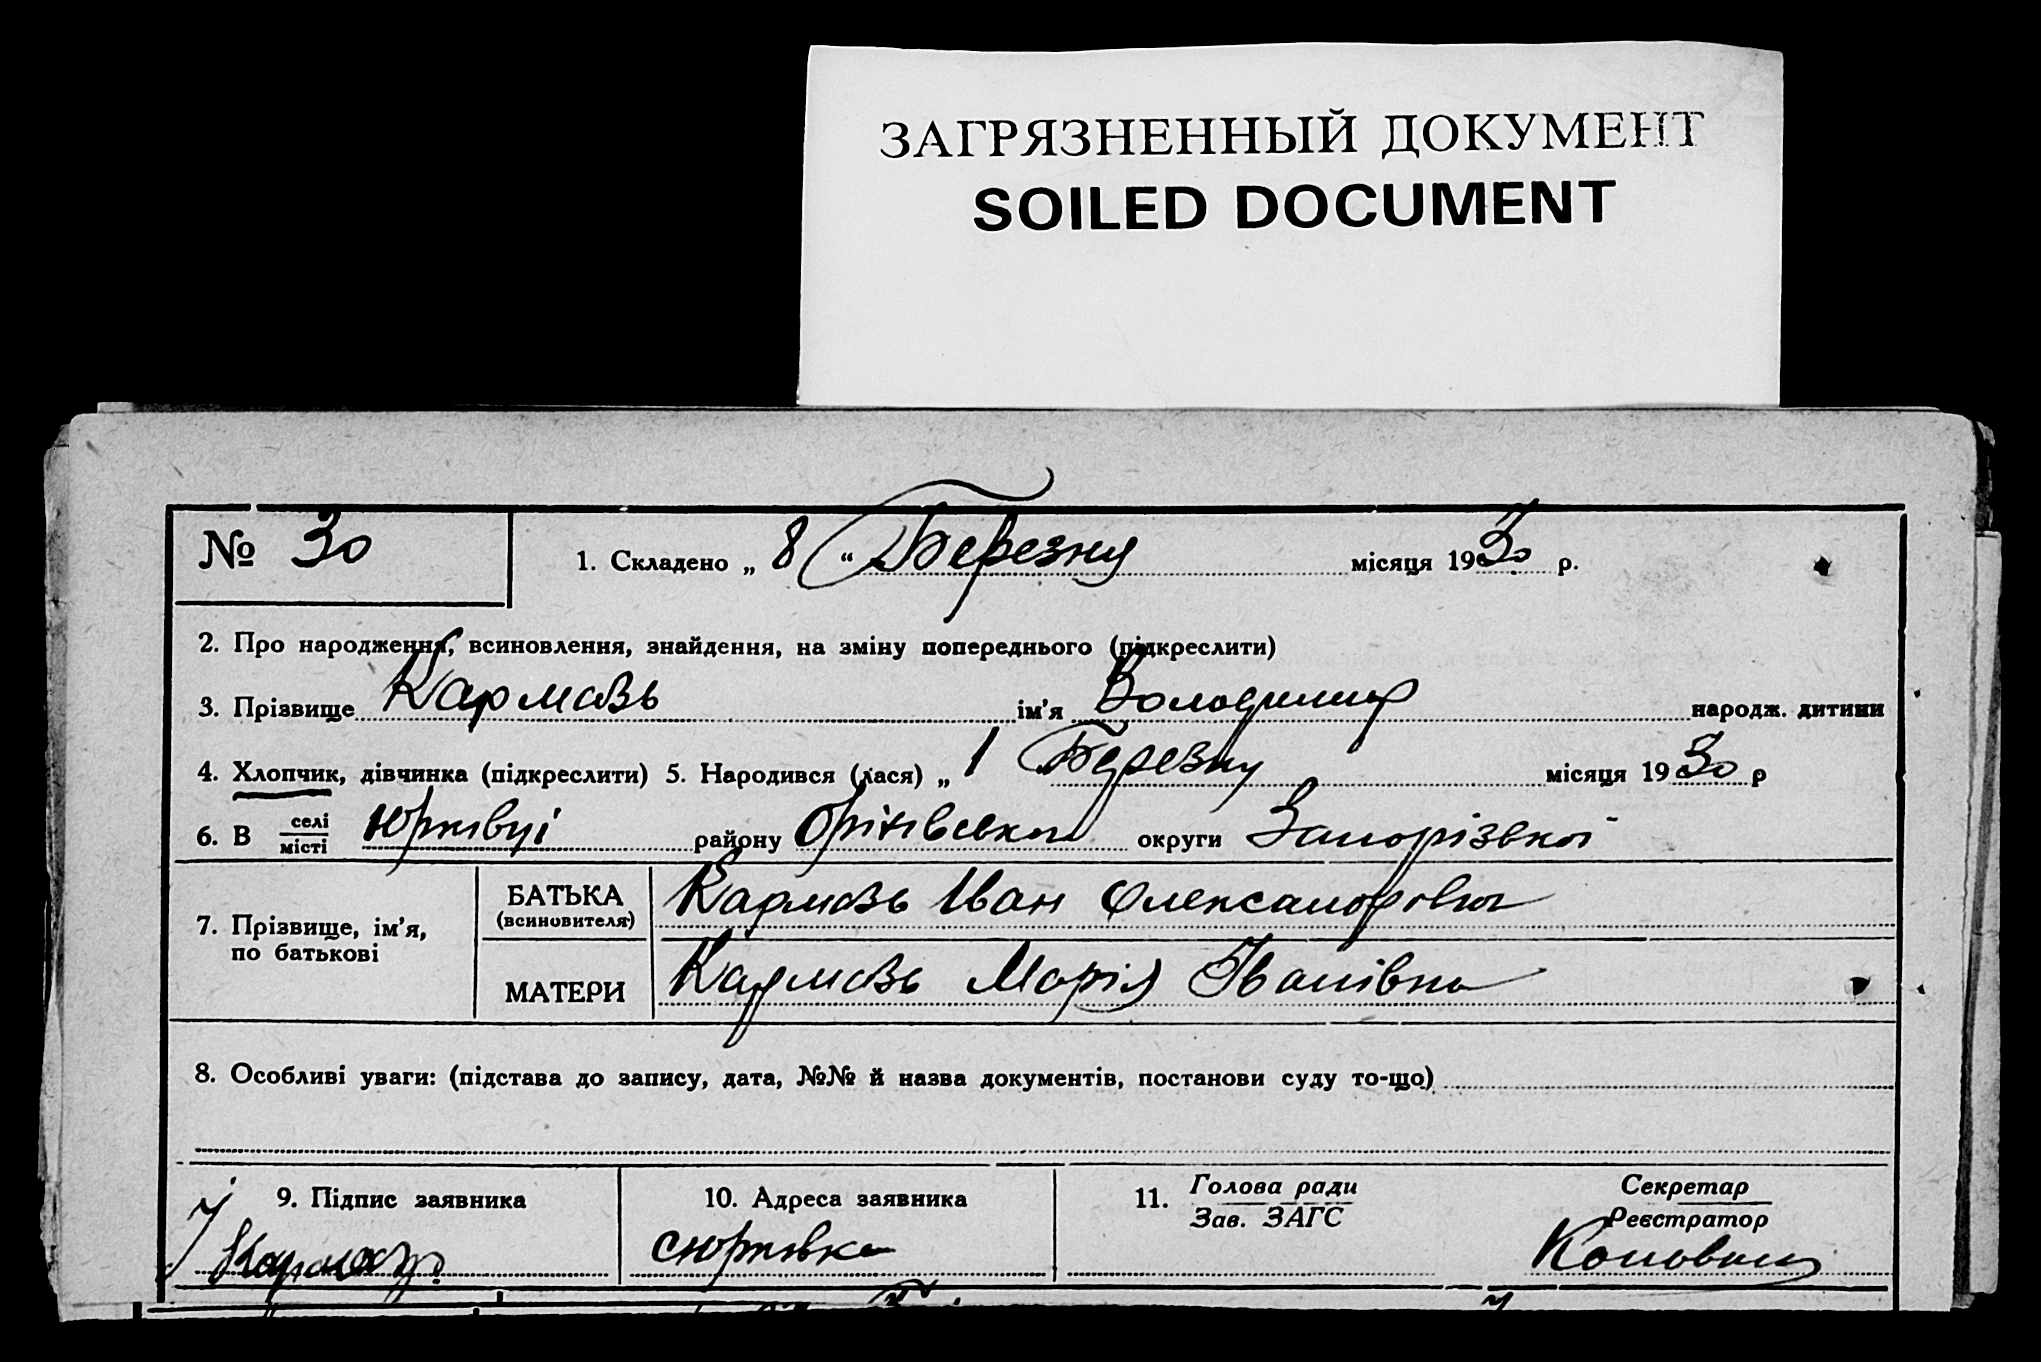 ЗАГРЯЗНЕННЫЙ ДОКУМЕНТ
SOILED DOCUMENT
№ 30
1. Складено „ 8 “ Березня місяця 1930 р.
2. Про народження, всиновлення, знайдення, на зміну попереднього (підкреслити)
3. Прізвище Кармазь ім’я Володимир народж. дитини
4. Хлопчик, дівчинка (підкреслити) 5. Народився (лася) „ 1 Березня місяця 1930 р
6. В селі місті Юрківці району Оріхівського округи Запорізької
7. Прізвище, ім’я, по батькові
БАТЬКА (всиновителя) Кармазь Іван Олександрович
МАТЕРИ Кармазь Марія Іванівна
8. Особливі уваги: (підстава до запису, дата, №№ й назва документів, постанови суду то-що)
9. Підпис заявника
Кармазь
10. Адреса заявника
с Юрківка
11. Голова ради
Зав. ЗАГС
Секретар
Реєстратор